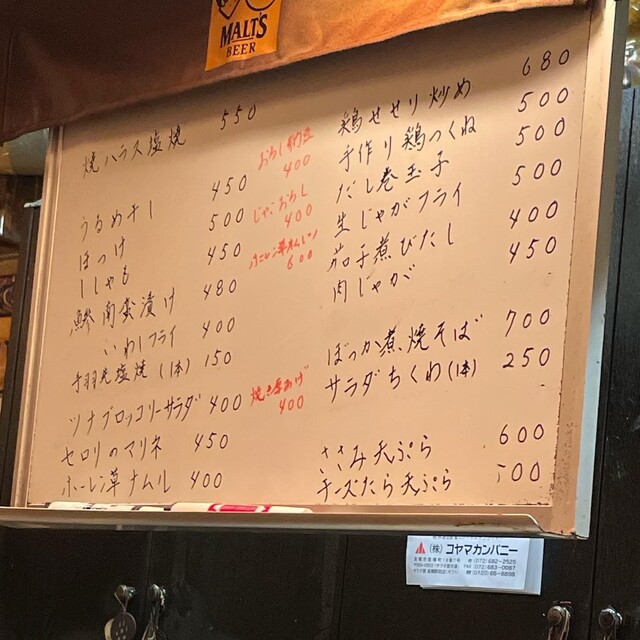 MALT'S
BEER
焼ハラス塩焼 550
うるめ干し 450
ほっけ 500
ししゃも 450
鯵南蛮漬け 480
いわしフライ 400
手羽先塩焼(1本) 150
ツナブロッコリーサラダ 400
セロリのマリネ 450
ホーレン草ナムル 400
おろし納豆
400
じゃこおろし
400
ホーレン草オムレツ
600
焼き厚あげ
400
鶏せせり炒め 680
手作り鶏つくね 500
だし巻玉子 500
生じゃがフライ 500
茄子煮びたし 400
肉じゃが 450
ぼっか煮焼そば 700
サラダちくわ(1本) 250
ささみ天ぷら 600
チーズたら天ぷら
(株)コヤマカンパニー
(072)682-2525
FAX(072)683-0067